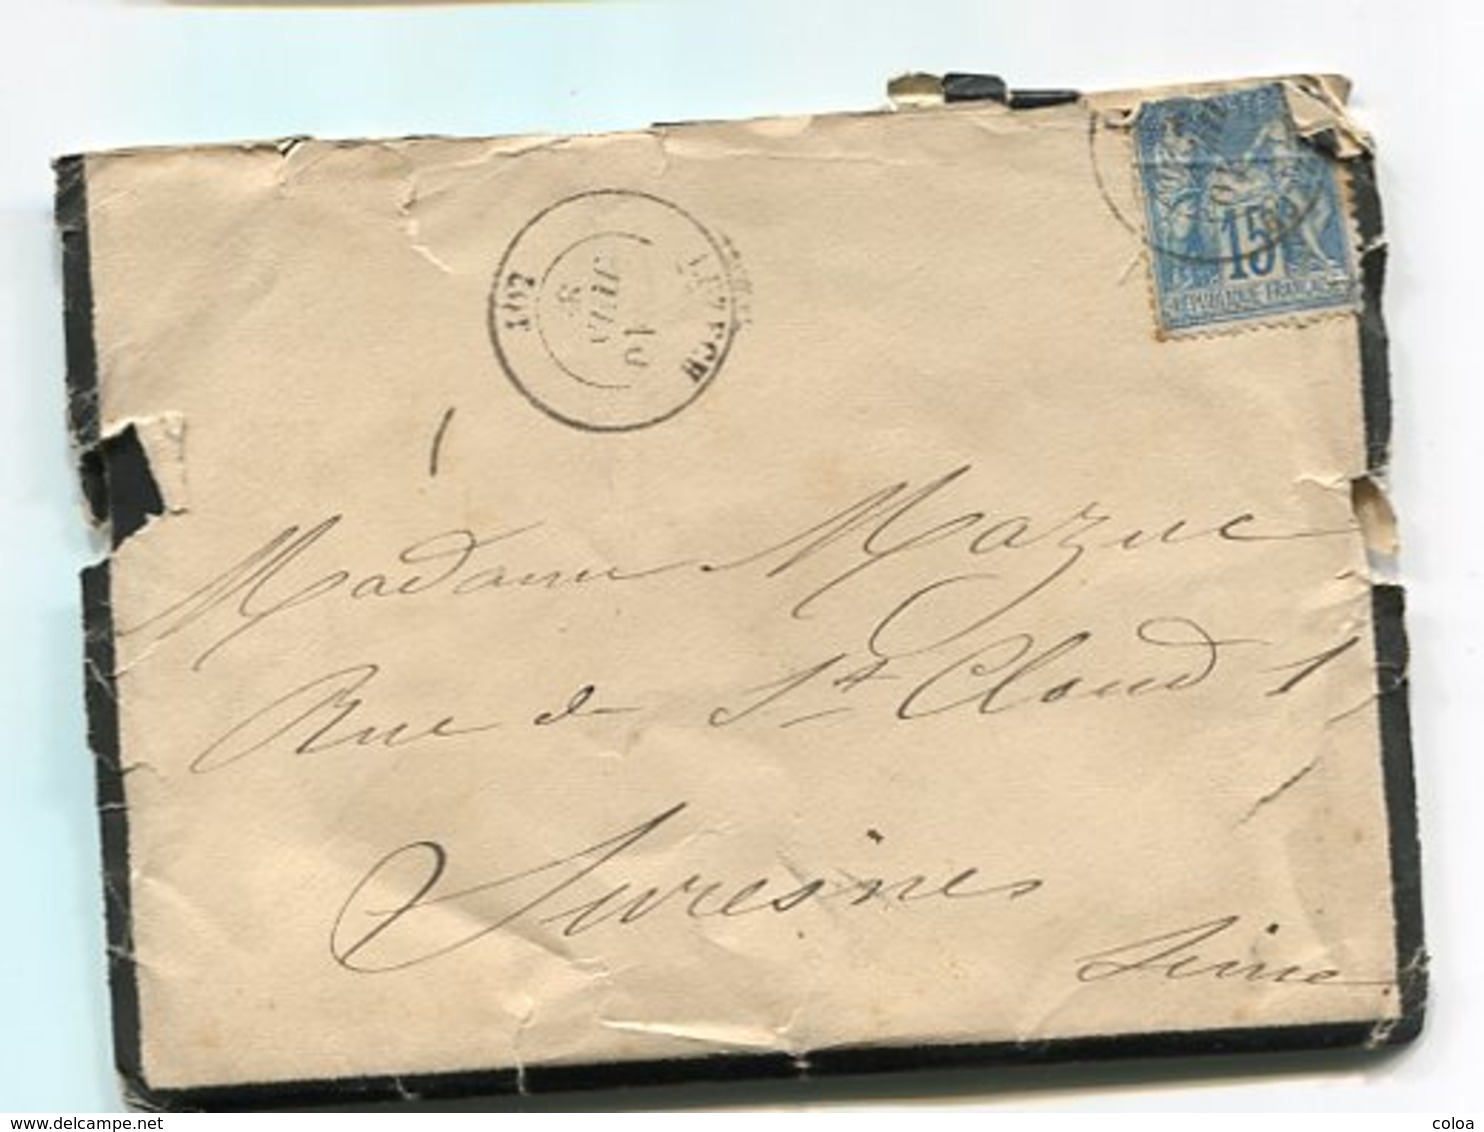 15
REPUBLIQUE FRANCAISE
LOT
Madame Mazuc
Rue de St Cloud 1
Suresnes
Seine.
www.delcampe.net
coloa